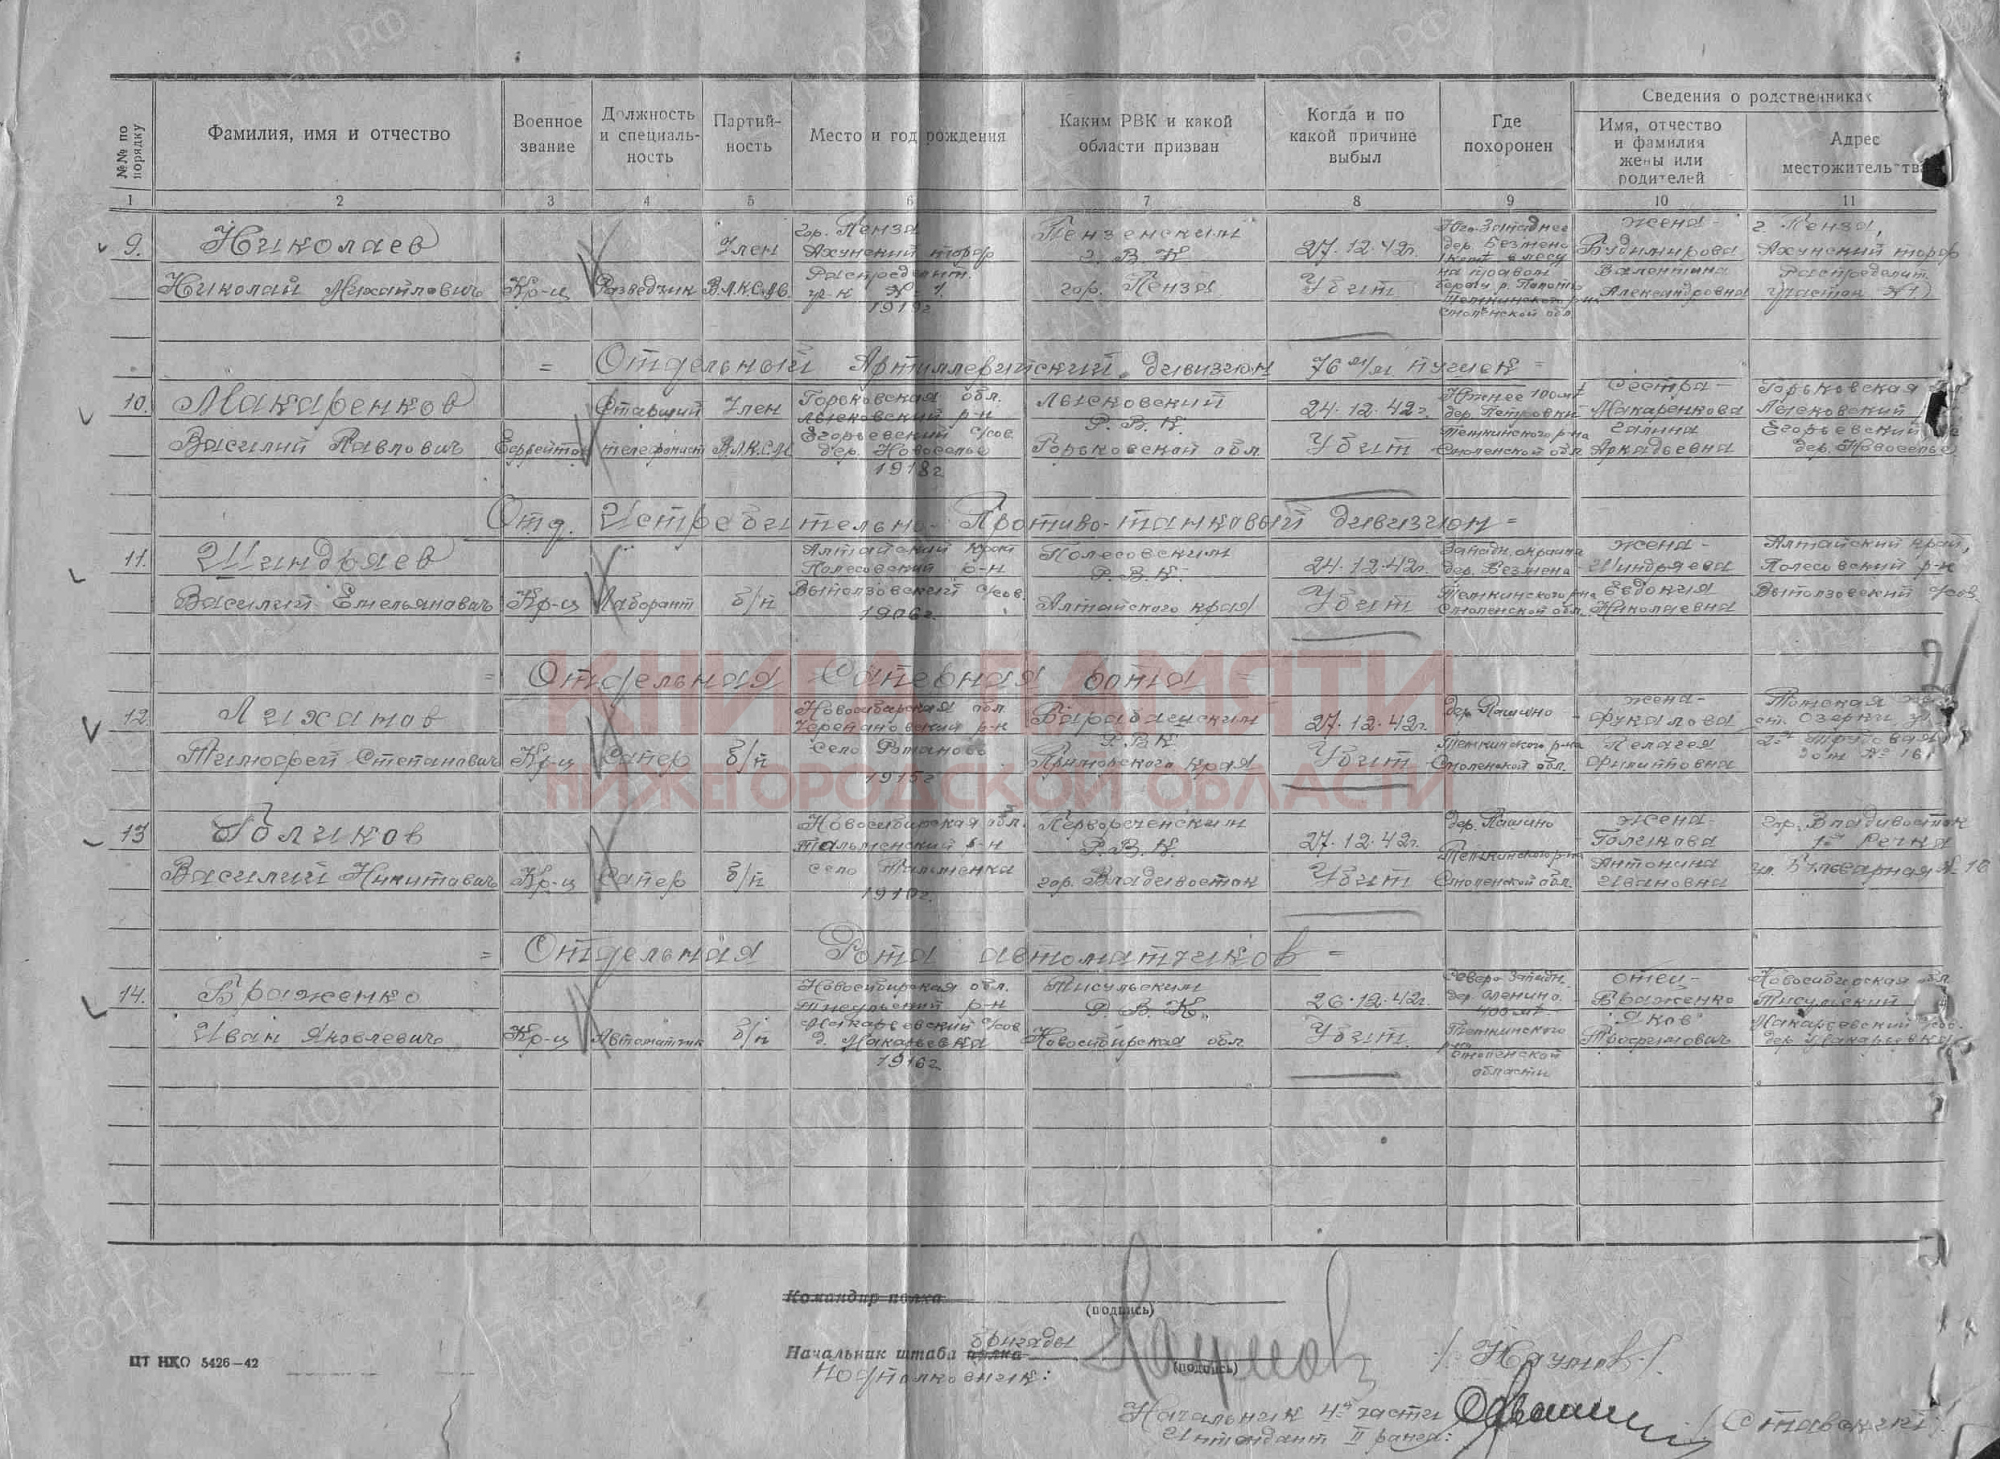 №№ по порядку
Фамилия, имя и отчество
Военное звание
Должность и специаль-ность
Партий-ность
Место и год рождения
Каким РВК и какой области призван
Когда и по какой причине выбыл
Где похоронен
Сведения о родственниках
Имя, отчество и фамилия жены или родителей
Адрес местожительства
1 2 3 4 5 6 7 8 9 10 11
9. Николаев
Николай Михайлович
Кр-ц
Разведчик
Член
В.Л.К.С.М.
гор. Пенза
Ахунский торф
Распределит.
уч-к № 1.
1919г.
Пензенским
Г. В. К.
гор. Пенза
27.12.42г.
Убит
Юго-Западнее
дер. Безмено
в лесу
на правом
берегу р.
Темкинского р-на
Смоленской обл.
жена -
Будимирова
Валентина
Александровна
г. Пенза,
Ахунский торф
Распределит.
участок №1
= Отдельный Артиллерийский дивизион 76 м/м пушек =
10. Макаренков
Василий Павлович
Ефрейтор
Старший
телефонист
Член
В.Л.К.С.М
Горьковская обл.
Лысковский р-н
Егорьевский с/сов.
дер. Новоселье
1918г.
Лысковский
Р. В. К.
Горьковской обл.
24.12.42г.
Убит
Южнее 100 мт
дер. Петровки
Темкинского р-на
Смоленской обл.
Сестра -
Макаренкова
Галина
Аркадьевна
Горьковская
Лысковский
Егорьевский
дер. Новоселье
Отд. Истребительно-Противо-танковый дивизион =
11. Шиндряев
Василий Емельянович
Кр-ц
Лаборант
б/п
Алтайский край
Полесовский р-н
Выползовский с/сов.
1906г.
Полесовским
Р. В. К.
Алтайского края
24.12.42г.
Убит
Западн. окраина
дер. Безмена
Темкинского р-на
Смоленской обл.
жена -
Шиндряева
Евдокия
Николаевна
Алтайский край,
Полесовский р-н
Выползовский с/сов.
= Отдельная Саперная рота =
12 Лиханов
Тимофей Степанович
Кр-ц
Сапер
б/п
Новосибирская обл.
Черепановский р-н
село
1915г.
Барабашским
Р.В.К.
Приморского края
27.12.42г.
Убит
дер. Пашино
Темкинского р-на
Смоленской обл.
жена -
Фукалова
Пелагея
Филипповна
Томская
ст. Озерки
2-я Трудовая
дом № 16
13 Голиков
Василий Никитович
Кр-ц
Сапер
б/п
Новосибирская обл.
Тальменский р-н
село Тальменка
1910г.
Первореченским
Р. В. К.
гор. Владивосток
27.12.42г.
Убит
дер. Пашино
Темкинского р-на
Смоленской обл.
жена -
Голикова
Антонина
Ивановна
гор. Владивосток
1ая Речка
ул. Бульварная № 10
= Отдельная Рота автоматчиков =
14. Браженко
Иван Яковлевич
Кр-ц
Автоматчик
б/п
Новосибирской обл.
Тисульский р-н
Макарьевский с/сов
д. Макарьевка
1916г.
Тисульским
Р. В. К.
Новосибирская обл
26.12.42г.
Убит.
Северо-Западн.
дер. Аленино
400 мт
Темкинского
р-на
Смоленской
области
отец -
Браженко
Яков
Тимофеевич
Новосибирская обл.
Тисульский
Макарьевский с/сов.
дер. Макарьевка
КНИГА ПАМЯТИ
НИЖЕГОРОДСКОЙ ОБЛАСТИ
Командир полка
(подпись)
Начальник штаба полка бригады
(подпись)
Подполковник:
/ Наумов /
ЦТ НКО 5426—42
Начальник 4й части
Интендант II ранга:
/ Ставский /